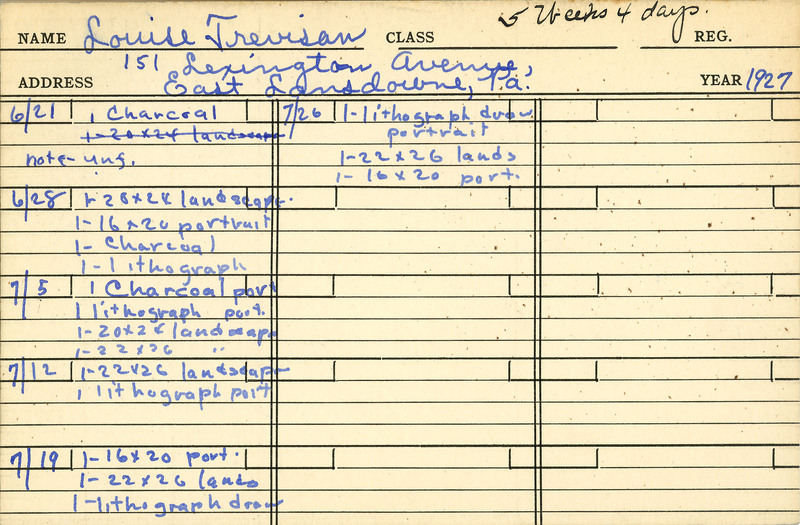 5 Weeks 4 days.
NAME Louise Trevisan CLASS REG.
151 Lexington Avenue,
ADDRESS East Lansdowne, Pa. YEAR 1927
6/21 1 Charcoal
1-20x24 landscape
note- ung.
6/28 1-28x24 landscape.
1-16x20 portrait
1- Charcoal
1-lithograph
7/5 1 Charcoal port
1 lithograph port.
1-20x24 landscape
1-22x26 "
7/12 1-22x26 landscape
1 lithograph port
7/19 1-16x20 port.
1-22x26 lands
1-lithograph draw
7/26 1-lithograph draw.
portrait
1-22x26 lands
1-16x20 port.